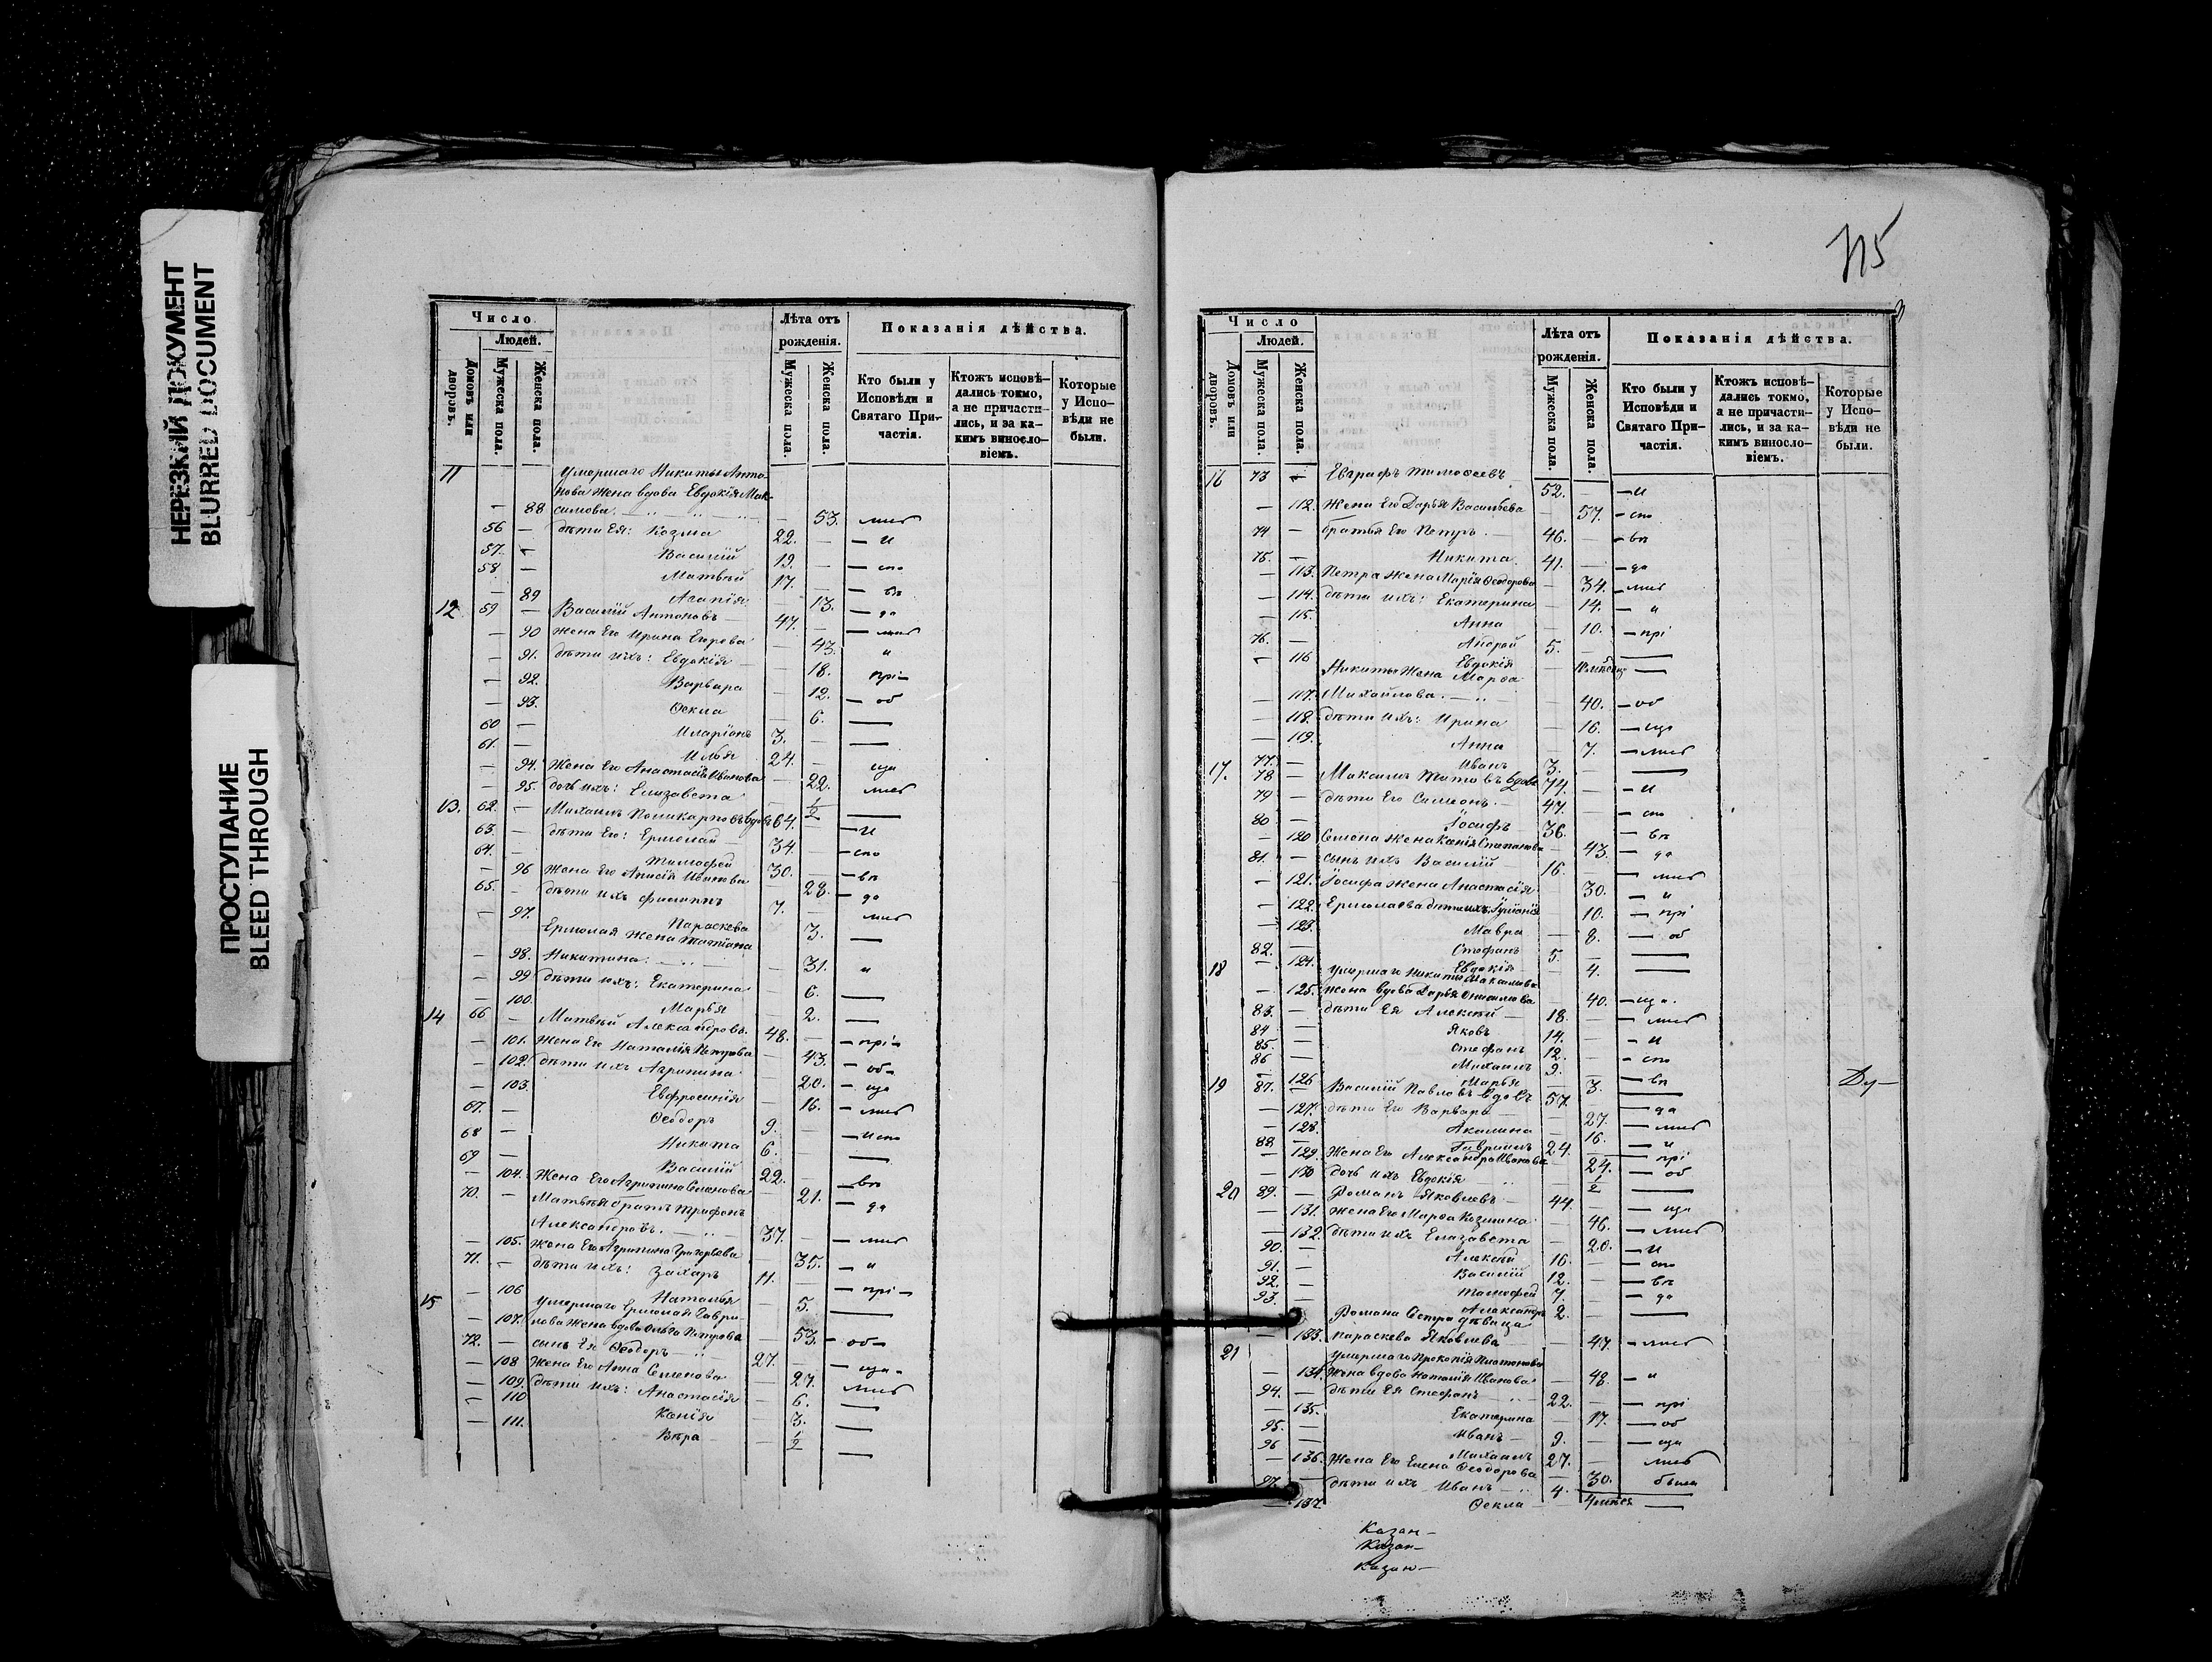 НЕРЕЗКИЙ ДОКУМЕНТ
BLURRED DOCUMENT
ПРОСТУПАНИЕ
BLEED THROUGH
Число
Людей.
Домовъ или дворовъ.
Мужеска пола.
Женска пола.
Лѣта отъ рожденія.
Мужеска пола.
Женска пола.
Показанія дѣйства.
Кто были у Исповѣди и Святаго Причастія.
Ктожъ исповѣдались токмо, а не причастились, и за какимъ винословіемъ.
Которые у Исповѣди не были.
11 Умершаго Никиты Анто-
нова жена вдова Евдокія Мак-
— 88 симова — 53.
56 — дѣти Ея: Козма 22. — — и
57. — Василій 19. — — спо
58. — Матвѣй 17. — — вѣ
— 89 Агапія — 13. — да
12. 59 — Василій Антоновъ 47. —
— 90 Жена Его Ирина Егорова — 43. и
— 91. дѣти ихъ: Евдокія — 18. прі—
— 92. Варвара — 12. — об
— 93. Ѳекла — 6. —
60 — Иларіонъ 3. — —
61. — Илья 24. — ща
— 94. Жена Его Анастасія Иванова — 22.
— 95. дочь ихъ: Елизавета — 1/2 —
13. 62. — Михаилъ Поликарповъ вдовъ 64. — — и
63. — дѣти Его: Ермолай 34. — — спо
64. — Тимофей 30. — — вѣ
— 96 Жена Его Анисія Иванова — 28. — да
65. — дѣти ихъ Филиппъ 7. —
— 97. Параскева — 3. —
Ермолая жена Татіана
— 98. Никитина — 31. и
— 99 дѣти ихъ: Екатерина — 6. —
— 100. Марья — 2. —
14 66 — Матвѣй Александровъ 48. — — прі—
— 101. Жена Его Наталія Петрова — 43. — об—
— 102. дѣти ихъ Агрипина — 20. — ща
— 103. Евфросинія — 16.
67. — Ѳеодоръ 9. — — испо
68 — Никита 6. — —
69 — Василій 22. — — вѣ
— 104. Жена Его Агрипина Семенова — 21. — да
70. — Матвѣя братъ Трифонъ
Александровъ. 37. —
— 105. Жена Его Агрипина Григорьева — 35. — и
71. — дѣти ихъ: Захаръ 11. — — прі—
— 106 Наталья — 5. —
15 Умершаго Ермолая Гаври-
— 107. лова жена вдова Ольга Петрова — 53. — об—
72. — сынъ Ея Ѳеодоръ 27. — — ща—
— 108 Жена Его Анна Семенова — 27.
— 109. дѣти ихъ: Анастасія — 6. —
— 110 Ксенія — 3. —
— 111. Вѣра — 1/2 —
315
Число
Людей.
Домовъ или дворовъ.
Мужеска пола.
Женска пола.
Лѣта отъ рожденія.
Мужеска пола.
Женска пола.
Показанія дѣйства.
Кто были у Исповѣди и Святаго Причастія.
Ктожъ исповѣдались токмо, а не причастились, и за какимъ винословіемъ.
Которые у Исповѣди не были.
16 73 — Евграфъ Тимоѳеевъ 52. — — и
— 112. Жена Его Дарья Васильева — 57. — спо
74 — братья Его Петръ 46. — — вѣ
75. — Никита 41. — — да
— 113. Петра жена Марія Ѳеодорова — 34.
— 114. дѣти ихъ: Екатерина — 14. — и
— 115. Анна — 10. — прі
76. — Андрей 5. — —
— 116 Евдокія —
Никиты жена Марѳа
— 117. Михайлова — 40. — об
— 118. дѣти ихъ: Ирина — 16. — ща
— 119. Анна — 7.
77. — Иванъ 3. — —
17. 78 — Максимъ Титовъ вдовъ 74. — — и
79 — дѣти Его Симеонъ 47. — — спо
80 — Іосифъ 36. — — вѣ
— 120 Семена жена Ксенія Степанова — 43. — да
81. — сынъ ихъ Василій 16. —
— 121. Іосифа жена Анастасія — 30. — и
— 122. Ермолаева дѣти ихъ: — 10. — прі
— 123. Мавра — 8. — об
82. — Стефанъ 5. — —
— 124. Евдокія — 4. —
18 Умершаго Никиты Максимова
— 125. жена вдова Дарья — 40. — ща.
83. — дѣти Ея Алексѣй 18. —
84 — Яковъ 14. — — и
85. — Стефанъ 12. — — спо
86 — Михаилъ 9. — — вѣ
— 126 Марья — 3. —
19 87. — Василій Павловъ вдовъ 57. — — да
— 127. дѣти Его Варвара — 27.
— 128. Акилина — 16. — и
88 — Гавріилъ 24. — — прі
— 129. Жена Его Александра Иванова — 24. — об
— 130 дочь ихъ Евдокія — 1/2 —
20 89. — Романъ Яковлевъ 44. — — ща
— 131. Жена Его Марѳа Козмина — 46.
— 132. дѣти ихъ Елизавета — 20. — и
90. — Алексѣй 16. — — спо
91. — Василій 12. — — вѣ
92. — Тимофей 7. — — да
93. — Александръ 2. — —
Романа Сестра дѣвица
— 133. Параскева Яковлева — 47.
21 Умершаго Прокопія Платонова
— 134. Жена вдова Наталія Иванова — 48. — и
94. — дѣти Ея Стефанъ 22. — — прі
— 135. Екатерина — 17. — об
95. — Иванъ 9. — — ща
96 — Михаилъ 27. —
— 136. Жена Его Елена Ѳеодорова — 30. были
97. — дѣти ихъ Иванъ 4. — —
— 137. Ѳекла — —
Ду—
Казан—
Казан—
Казан—